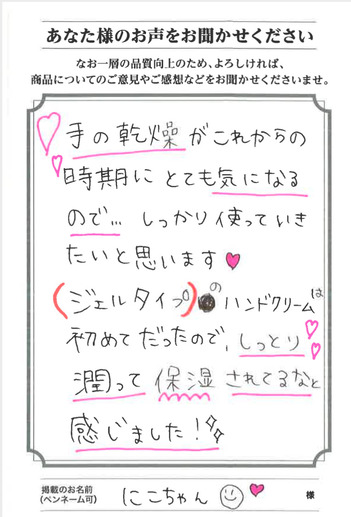 あなた様のお声をお聞かせください
なお一層の品質向上のため、よろしければ、
商品についてのご意見やご感想などをお聞かせくださいませ。
手の乾燥がこれからの
時期に とても気になる
ので… しっかり使っていき
たいと思います
(ジェルタイプ)のハンドクリームは
初めてだったので、しっとり
潤って 保湿 されてるなと
感じました!
掲載のお名前
(ペンネーム可)
にこちゃん 様